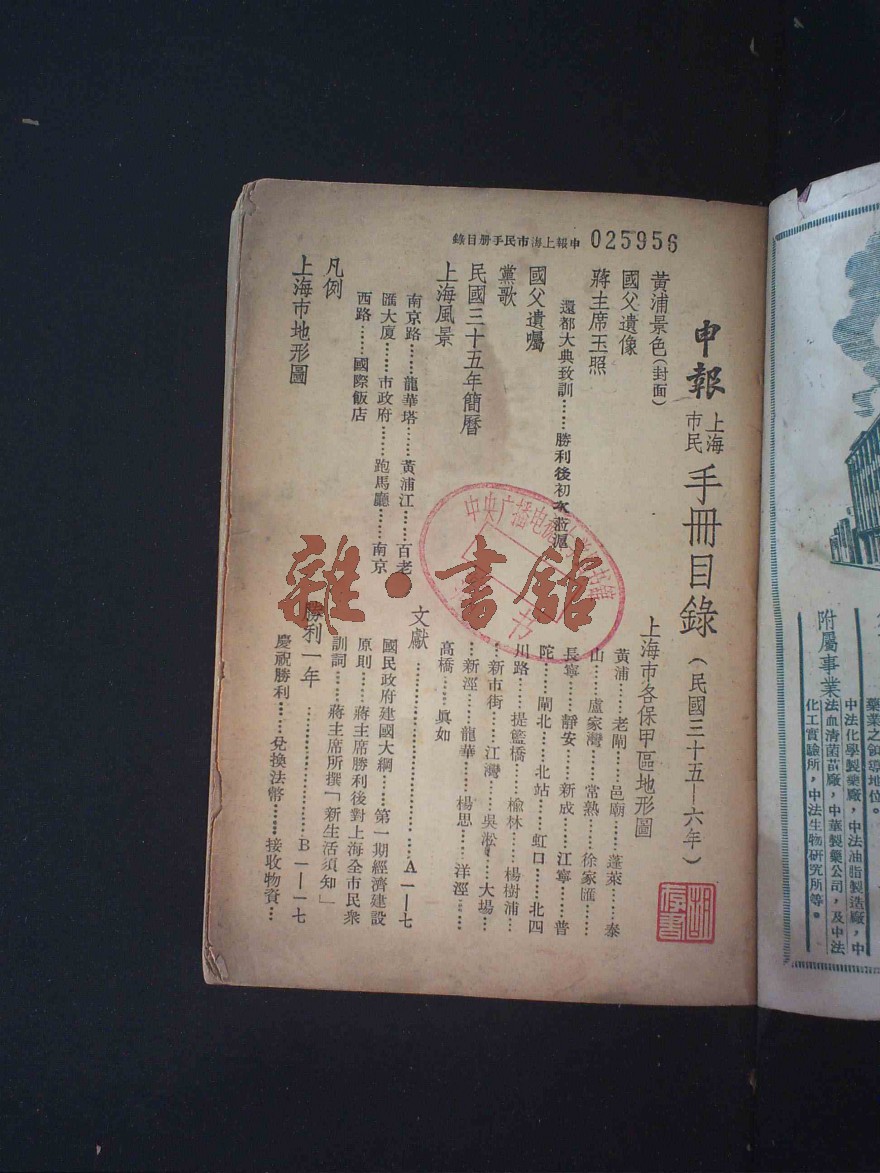 025956
申報上海市民手册目錄
申報
上海
市民
手冊目錄
(民國三十五—六年)
黃浦景色(封面)
國父遺像
蔣主席玉照
還都大典致訓……勝利後初次蒞滬
國父遺囑
黨歌
民國三十五年簡曆
上海風景
南京路……龍華塔……黃浦江……百老
匯大厦……市政府……跑馬廳……南京
西路……國際飯店
凡例
上海市地形圖
上海市各保甲區地形圖
黃浦……老閘……邑廟……蓬萊……泰
山……盧家灣……常熟……徐家匯……
長寧……靜安……新成……江寧……普
陀……閘北……北站……虹口……北四
川路……提籃橋……榆林……楊樹浦…
…新市街……江灣……吳淞……大場…
…新涇……龍華……楊思……洋涇……
高橋……眞如
文獻……A一—七
國民政府建國大綱……第一期經濟建設
原則……蔣主席勝利後對上海全市民衆
訓詞……蔣主席所撰「新生活須知」
勝利一年……B一—一七
慶祝勝利……兌換法幣……接收物資…
雜·書館
中央广播电
书
藥業之領導地位。
附屬事業
中法化學製藥廠,中法油脂製造廠,中
法血清菌苗廠,中華製藥公司,及中法
化工實驗所,中法生物研究所等。